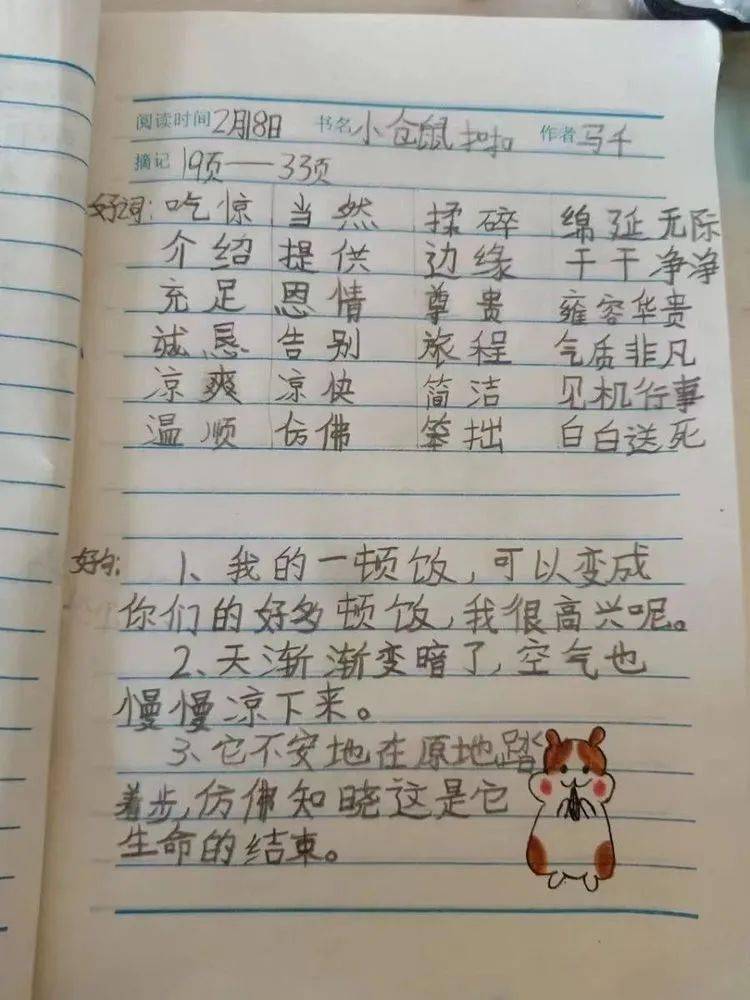 阅读时间2月18日 书名 小仓鼠扣扣 作者 马千
摘记 19页——33页
好词: 吃惊 当然 揉碎 绵延无际
介绍 提供 边缘 干干净净
充足 恩情 尊贵 雍容华贵
诚恳 告别 旅程 气质非凡
凉爽 凉快 简洁 见机行事
温顺 仿佛 笨拙 白白送死
好句: 1、我的一顿饭,可以变成
你们的好多顿饭,我很高兴呢。
2、天渐渐变暗了,空气也
慢慢凉下来。
3、它不安地在原地踏
着步,仿佛知晓这是它
生命的结束。